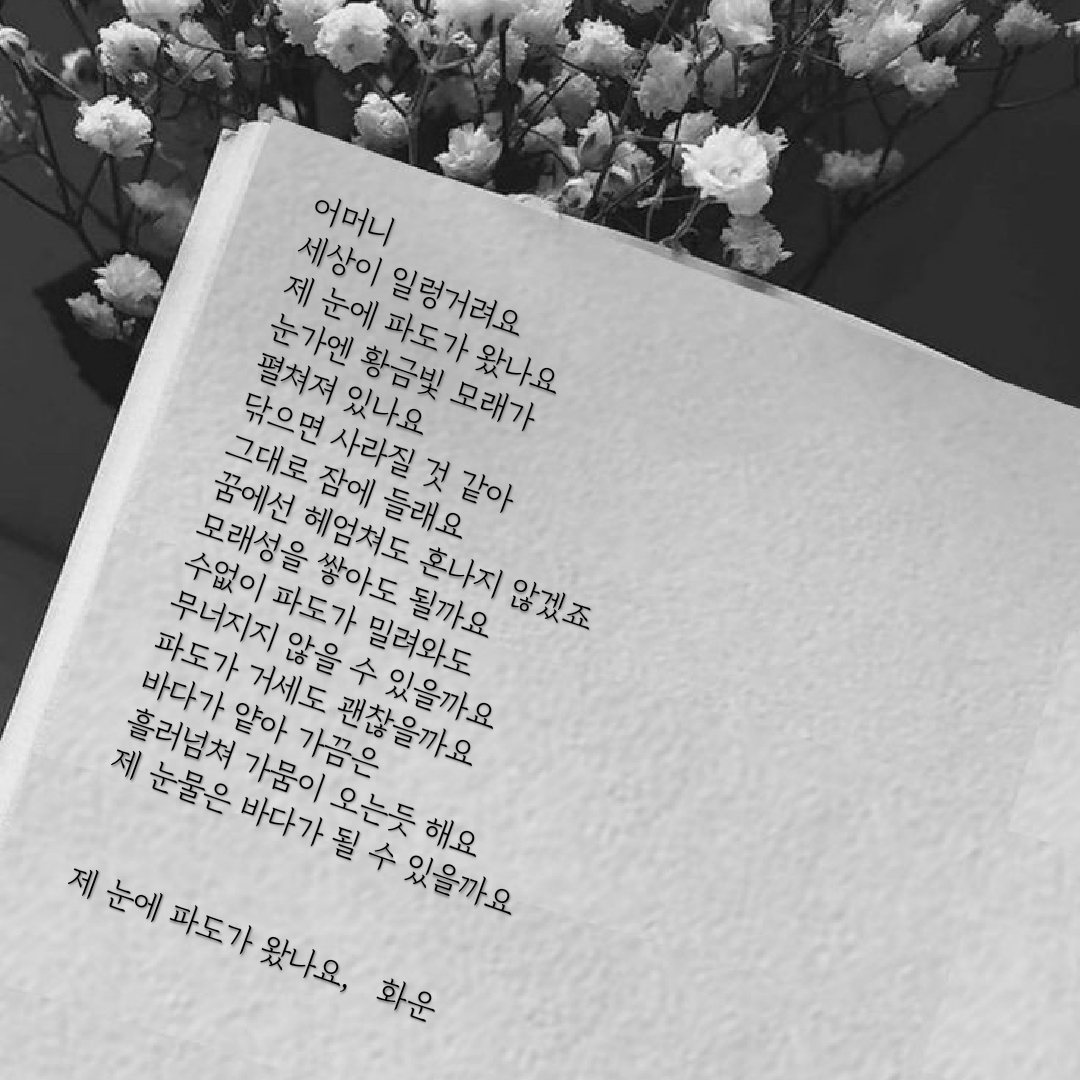 어머니
세상이 일렁거려요
제 눈에 파도가 왔나요
눈가엔 황금빛 모래가
펼쳐져 있나요
닦으면 사라질 것 같아
그대로 잠에 들래요
꿈에선 헤엄쳐도 혼나지 않겠죠
모래성을 쌓아도 될까요
수없이 파도가 밀려와도
무너지지 않을 수 있을까요
파도가 거세도 괜찮을까요
바다가 얕아 가끔은
흘러넘쳐 가뭄이 오는듯 해요
제 눈물은 바다가 될 수 있을까요
제 눈에 파도가 왔나요, 화운